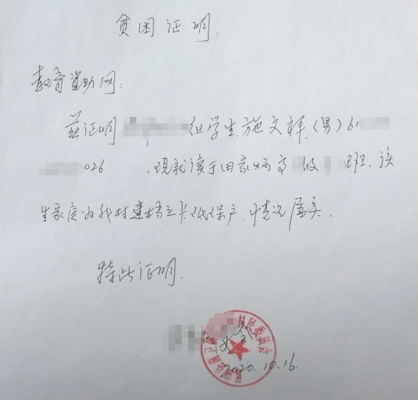 贫困证明
教育资助网:
兹证明 组学生施文祥,(男)61
026 .现就读于田家炳高 级 班,该
生家庭为我村建档立卡低保户,情况属实.
特此证明.
2020.10.16.